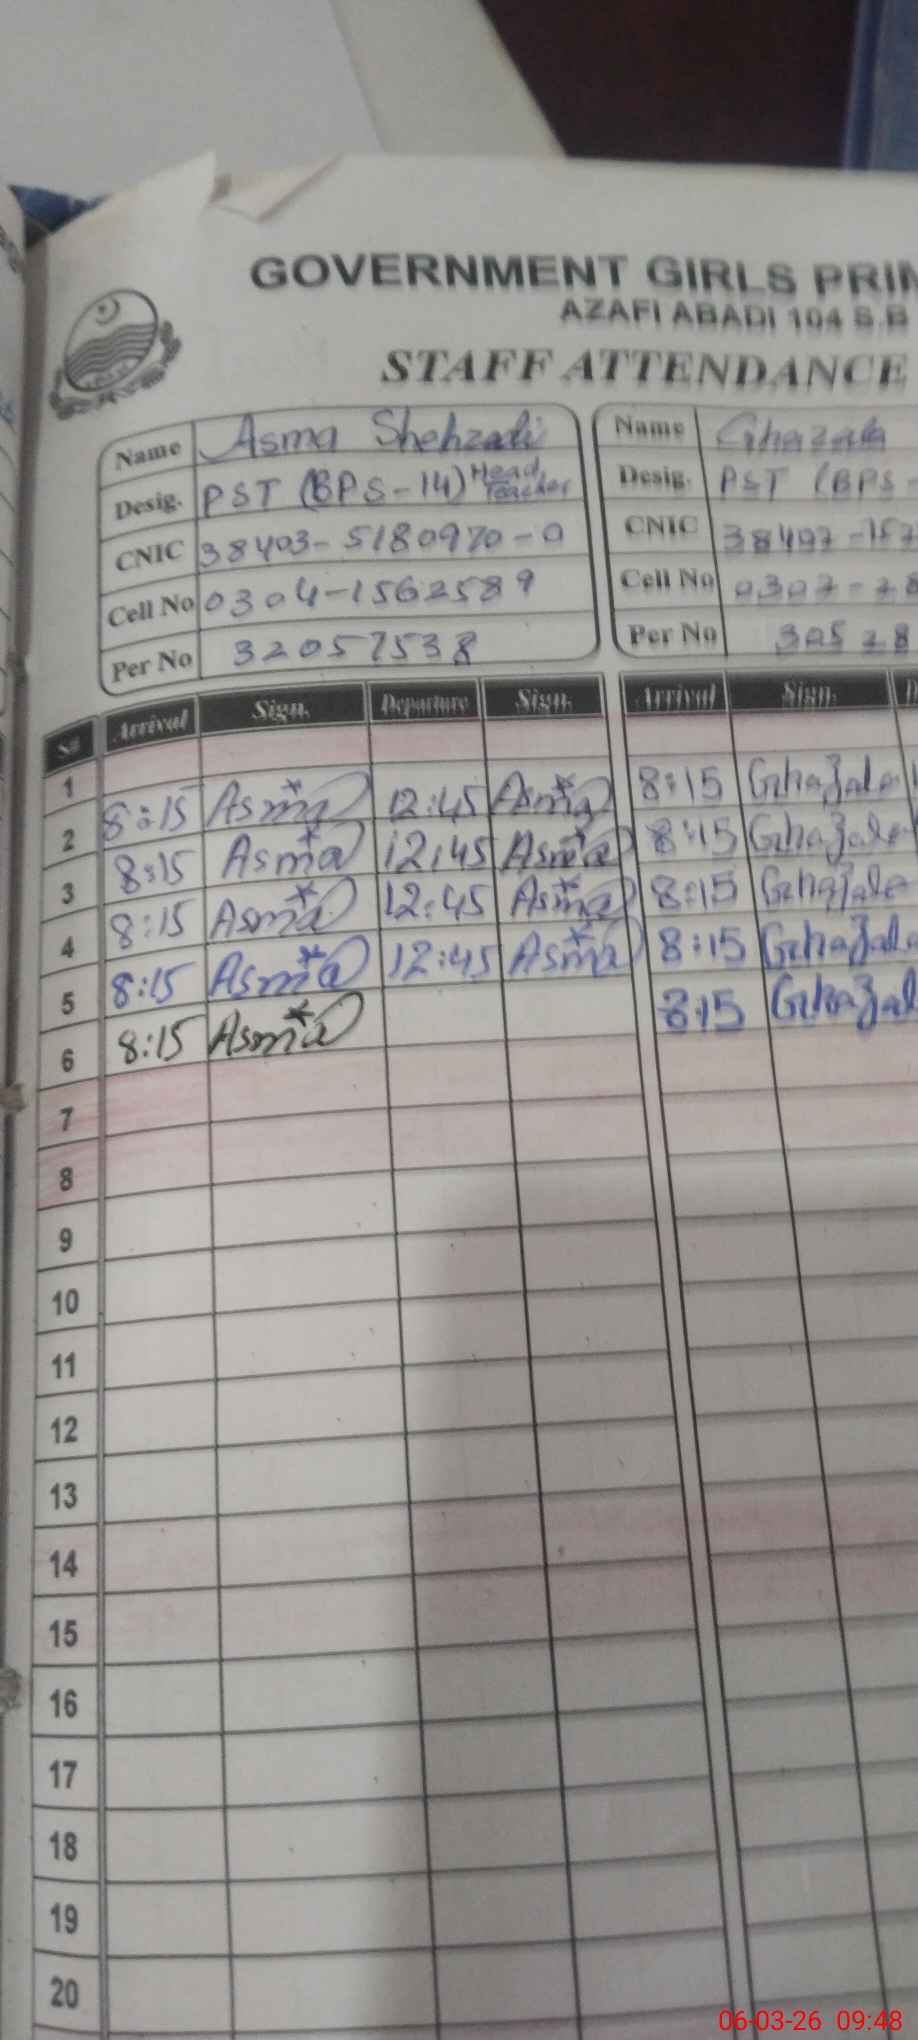 GOVERNMENT GIRLS PRIM
AZAFI ABADI 104 S.B
STAFF ATTENDANCE
Name Asma Shehzadi
Desig. PST (BPS-14) Head Teacher
CNIC 38403-5180970-0
Cell No 0304-1562589
Per No 32057538
Name Ghazala
Desig. PST (BPS-
CNIC
Cell No
Per No
S# Arrival Sign. Departure Sign. Arrival Sign.
1
2 8:15 Asma 12:45 Asma 8:15 Ghazala
3 8:15 Asma 12:45 Asma 8:15 Ghazala
4 8:15 Asma 12:45 Asma 8:15 Ghazala
5 8:15 Asma 12:45 Asma 8:15 Ghazala
6 8:15 Asma 8:15 Ghazal
7
8
9
10
11
12
13
14
15
16
17
18
19
20
06-03-26 09:48